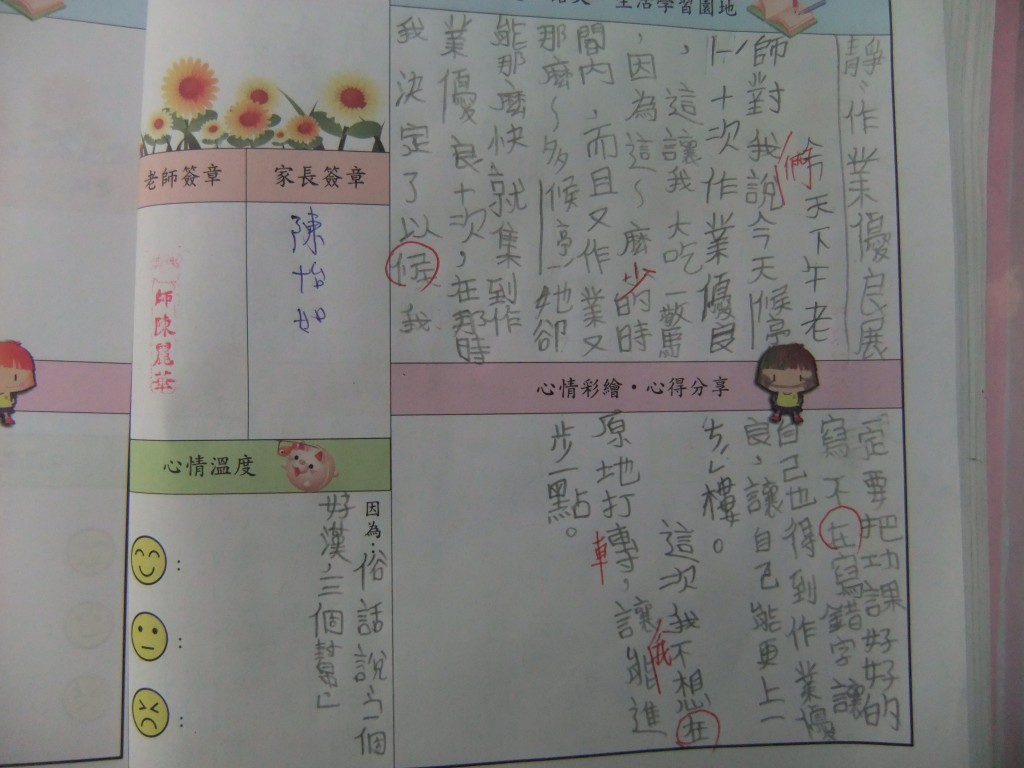 生活學習園地
靜"作業優良展
今天下午老
師對我們說今天候亭
十次作業優良
,這讓我大吃一驚
,因為這~麼少的時
間內,而且又作業又
那麼~多候亭她卻
能那麼快就集到作
業優良十次,在那時
我決定了以候我
心情彩繪・心得分享
定要把功課好好的
寫不在寫錯字讓
自己也得到作業優
良,讓自己能更上一
ㄘㄥˊ樓。
這次我不想在
原地打轉,讓能進
步一點。
老師簽章
家長簽章
陳怡如
師陳麗
心情溫度
因為:
俗話說:一個
好漢,三個幫」
:
:
: